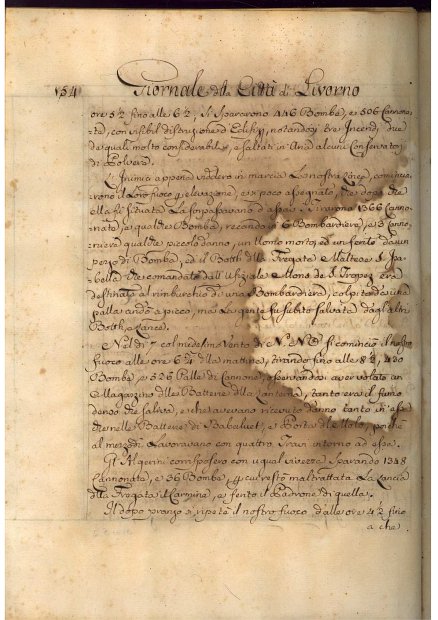 154 Giornale della Città di Livorno
ore 5½ fino alle 6½, si spararono 446 Bombe, e 506 Cannona-
te, con visibil distruzione d Edifizj, notandosi tre Incendj, due
de quali molto considerabili, e saltati in Aria alcuni Conservatorj
di Polvere.
Inimici appena viddero in marcia la nostra
rono il loro fuoco elevazione, e poco assegnato, che dopo che
ella fù situata La sorpassavano d'assai. Tirarono 1366 Canno-
nate, e qualche Bomba, recando à 6 Bombardiere, e 3 Canno-
niere qualche piccolo danno, un Uomo morto, ed un ferito da un
pezzo di Bomba, ed il Botth della Fregata Maltese S. Isa-
bella che comandato dall Ufiziale Mons de S. Tropez era
destinato al rimburchio di una Bombardiera, colpito da una
palla andò a picco, ma la gente fù subito salvata dagl'altri
Botth, e Lance.
Nel dì 7 col medesimo Vento di si cominciò il nostro
fuoco alle ore 6¾ della mattina, tirando fino alle 8½, 480
Bombe, e 526 Palle di Cannone, osservandosi aver volato un
Magazzino delle Batterie della tanto era il fumo
denso che saliva, e che avevano ricevuto danno tanto in esse
che nelle Batterie di e Porta del Molo, poichè
al mezzodì Lavoravano con quattro intorno ad esse.
Gl Algerini corrisposero con ugual vivezza Sparando 1348
Cannonate, e 36 Bombe restò maltrattata La Lancia
della Fregata il Carmine, e ferito il Padrone di quella.
Il dopo pranzo si ripetè il nostro fuoco dalle ore 4½ fino
a che